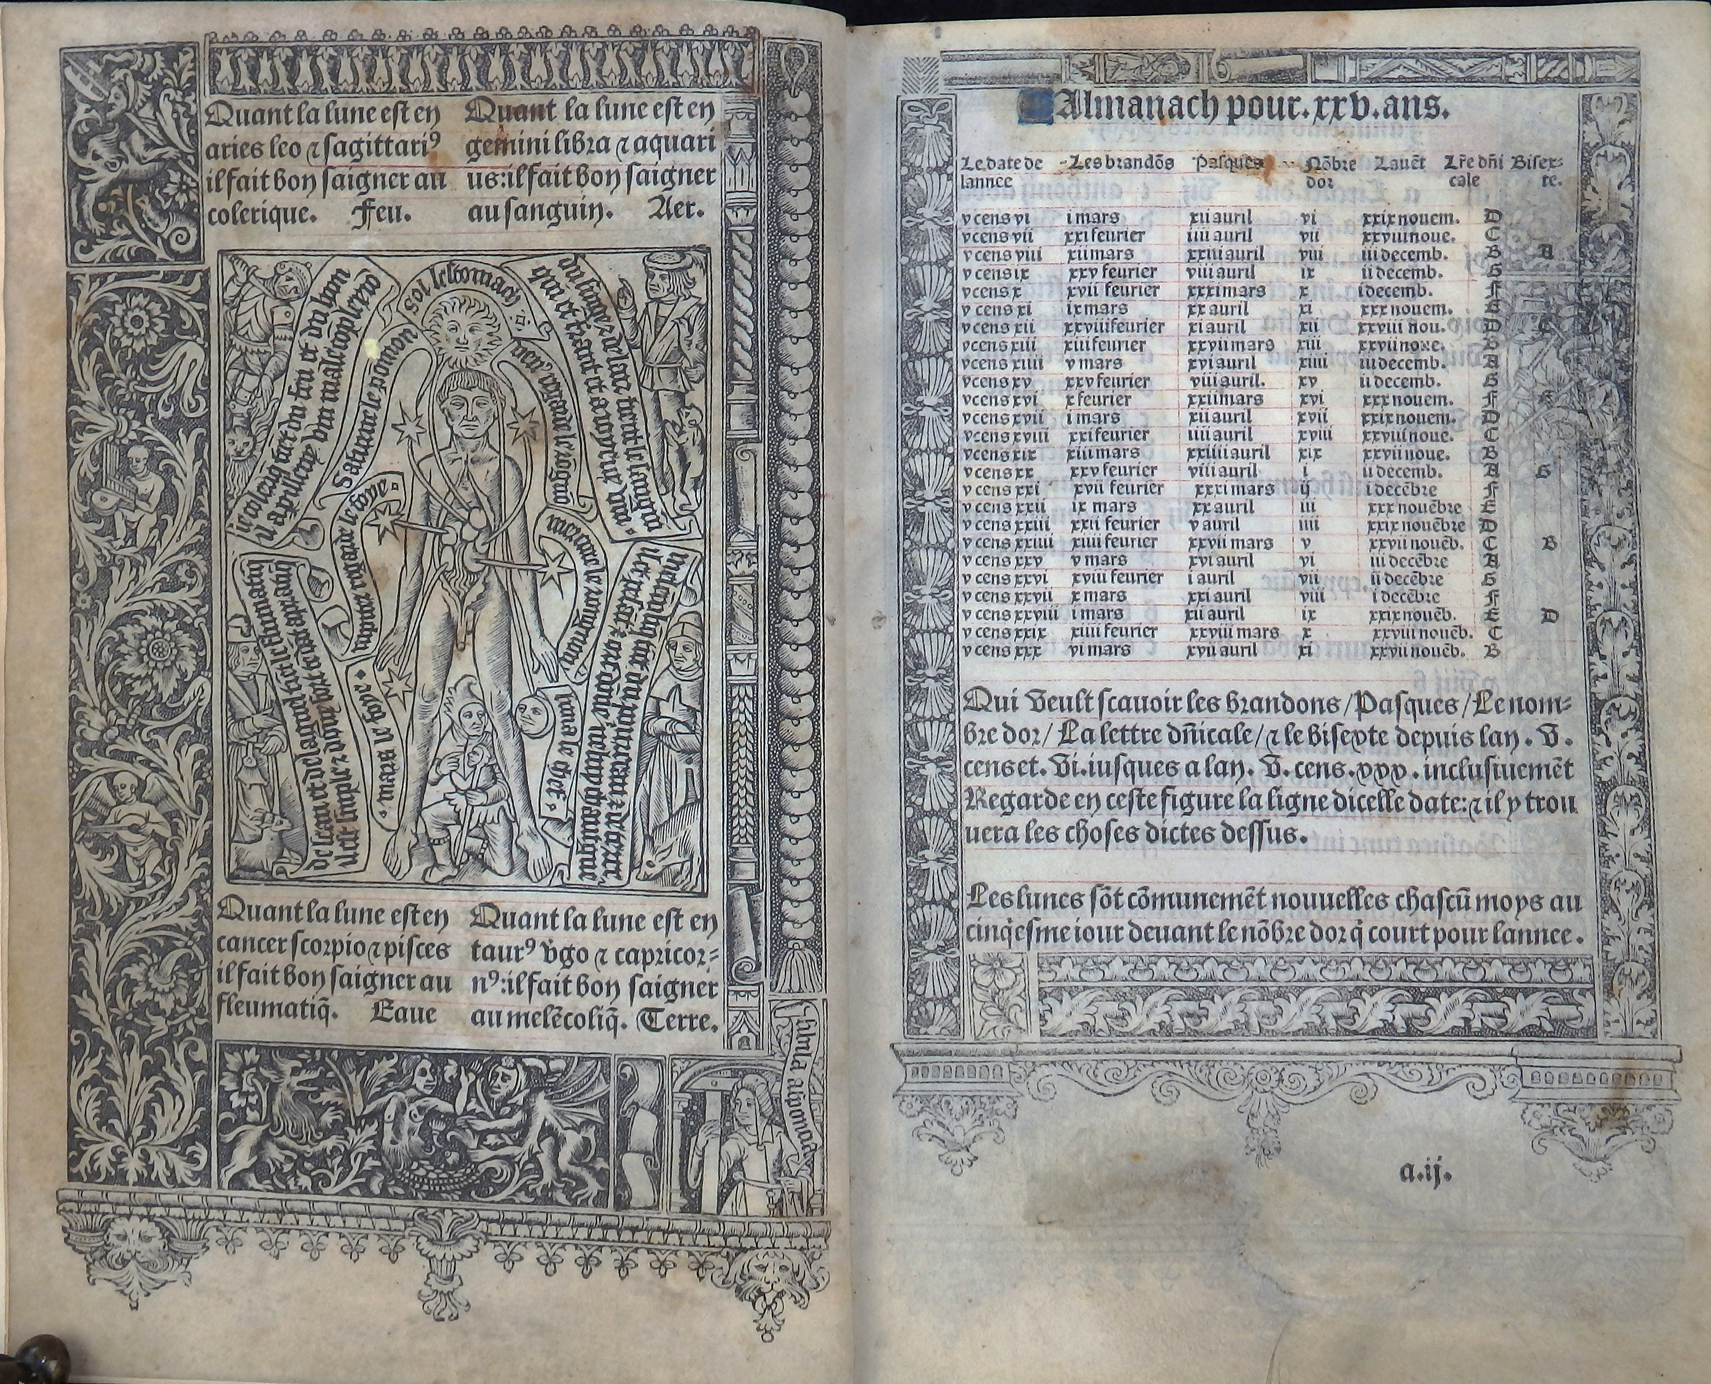 Quant la lune est en
aries leo ⁊ sagittariꝰ
il fait bon saigner au
colerique. Feu.
Quant la lune est en
gemini libra ⁊ aquari
us: il fait bon saigner
au sanguin. Aer.
Sol lestomach
Saturne le pomon
Venꝰ regarde les rōgnōs
Jupiter regarde le foye.
mercure le rongnons
Mars le fiel
luna le chef.
Quant la lune est en
cancer scorpio ⁊ pisces
il fait bon saigner au
fleumatiq̄. Eaue
Quant la lune est en
taurꝰ v̄go ⁊ capricor⸗
nꝰ: il fait bon saigner
au melēcoliq̄. Terre.
Almanach pour. xxv. ans.
Le date de Les brandōs Pasques Nōbre Lauēt Lr̄e dn̄i Bisex⸗
lannee dor cale te.
v cens vi i mars xii auril vi xxix nouem. D
v cens vii xxi feurier iiii auril vii xxviii noue. C
v cens viii xii mars xxiii auril viii iii decemb. B A
v cens ix xxv feurier viii auril ix ii decemb. G
v cens x xvii feurier xxxi mars x i decemb. F
v cens xi ix mars xx auril xi xxx nouem. E
v cens xii xxviii feurier xi auril xii xxviii nou. D C
v cens xiii xiii feurier xxvii mars xiii xxvii noue. B
v cens xiiii v mars xvi auril xiiii iii decemb. A
v cens xv xxv feurier viii auril. xv ii decemb. G
v cens xvi x feurier xxiii mars xvi xxx nouem. F E
v cens xvii i mars xii auril xvii xxix nouem. D
v cens xviii xxi feurier iiii auril xviii xxviii noue. C
v cens xix xiii mars xxiiii auril xix xxvii noue. B
v cens xx xxv feurier viii auril i ii decemb. A G
v cens xxi xvii feurier xxxi mars ij i decēbre F
v cens xxii ix mars xx auril iii xxx nouēbre E
v cens xxiii xxii feurier v auril iiii xxix nouēbre D
v cens xxiiii xiiii feurier xxvii mars v xxvii nouēb. C B
v cens xxv v mars xvi auril vi iii decēbre A
v cens xxvi xviii feurier i auril vii ii decēbre G
v cens xxvii x mars xxi auril viii i decēbre F
v cens xxviii i mars xii auril ix xxix nouēb. E D
v cens xxix xiiii feurier xxviii mars x xxviii nouēb. C
v cens xxx vi mars xvii auril xi xxvii nouēb. B
Qui veult scauoir les brandons/Pasques/Le nom⸗
bre dor/ La lettre dn̄icale/⁊ le bisexte depuis lan. v.
cens et. vi. iusques a lan. v. cens. xxx. inclusiuemēt
Regarde en ceste figure la ligne dicelle date: ⁊ il y trou
uera les choses dictes dessus.
Les lunes sōt cōmunemēt nouuelles chascū moys au
cinq̄esme iour deuant le nōbre dor q̄ court pour lannee.
a.ij.